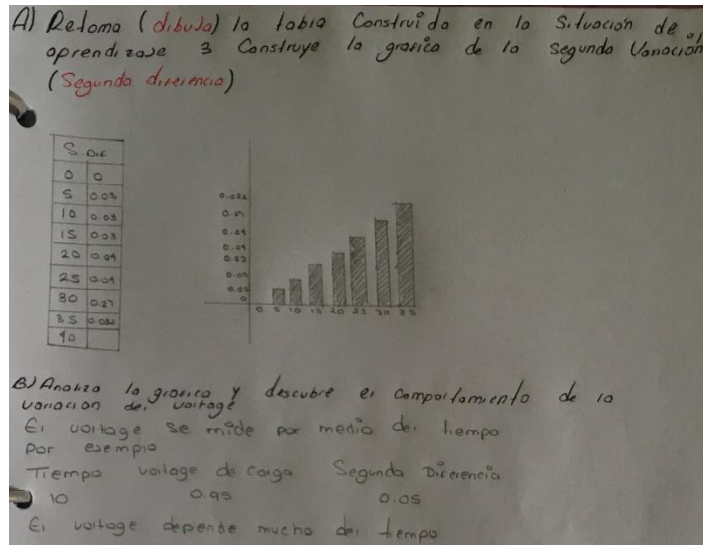 A) Retoma (dibuja) la tabla Construida en la Situación de
aprendizaje 3 Construye la grafica de la Segunda Variación
(Segunda diferencia)
S. Dif
0 0
5 0.05
10 0.05
15 0.03
20 0.04
25 0.04
30 0.27
35
40
0 5 10 15 20 25 30 35
B) Analiza la grafica y descubre el comportamiento de la
variacion del voltage
El voltage se mide por medio del tiempo
Por ejemplo
Tiempo voltage de carga Segunda Diferencia
10 0.95 0.05
El voltage depende mucho del tiempo